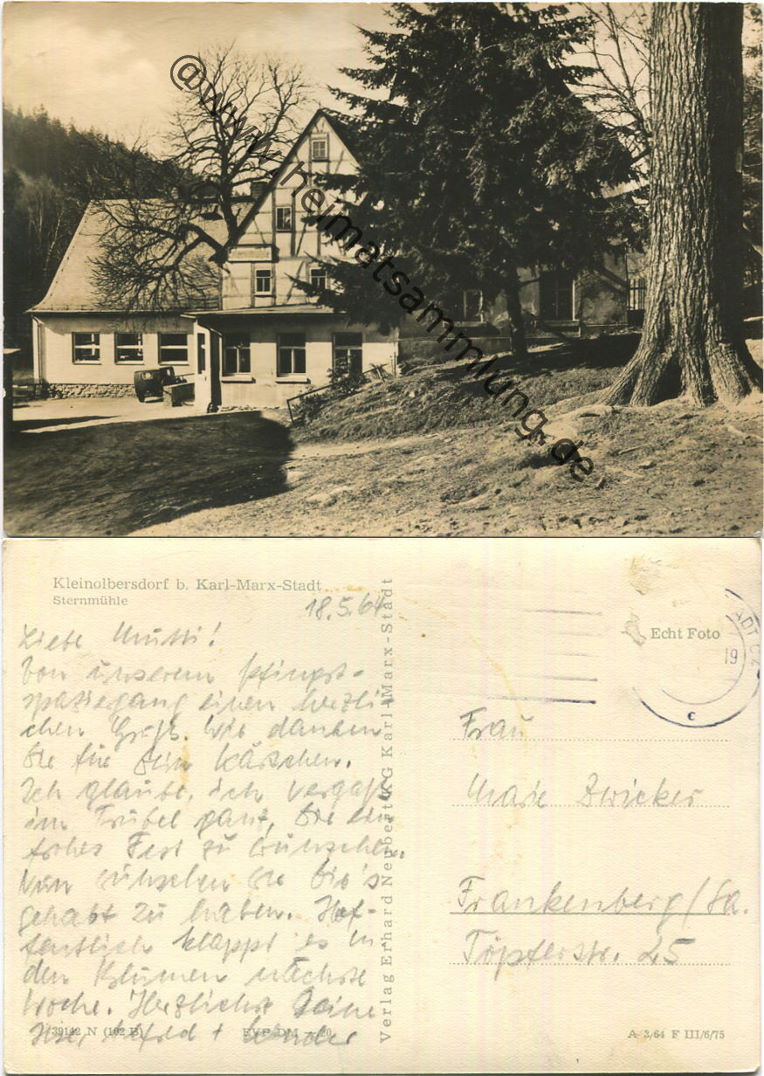 @www.heimatsammlung.de
Kleinolbersdorf b. Karl-Marx-Stadt
Sternmühle
18.5.64
Echt Foto
19
c
Liebe Mutti!
Von unserem Pfingst-
spaziergang einen herzli-
chen Gruß. Wir danken
Dir für Dein Kärtchen.
Ich glaube, ich vergaß
im Trubel ganz, Dir ein
frohes Fest zu wünschen.
Nun wünschen Dir
gehabt zu haben. Hof-
fentlich klappt es in
den Blumen nächste
Woche. Herzlichst Deine
Frau
Zwicker
Frankenberg/Sa.
Töpferstr. 25
Verlag Erhard Neubert KG Karl-Marx-Stadt
39142 N (102 B)
EVP DM -.20
A 3/64 F III/6/75